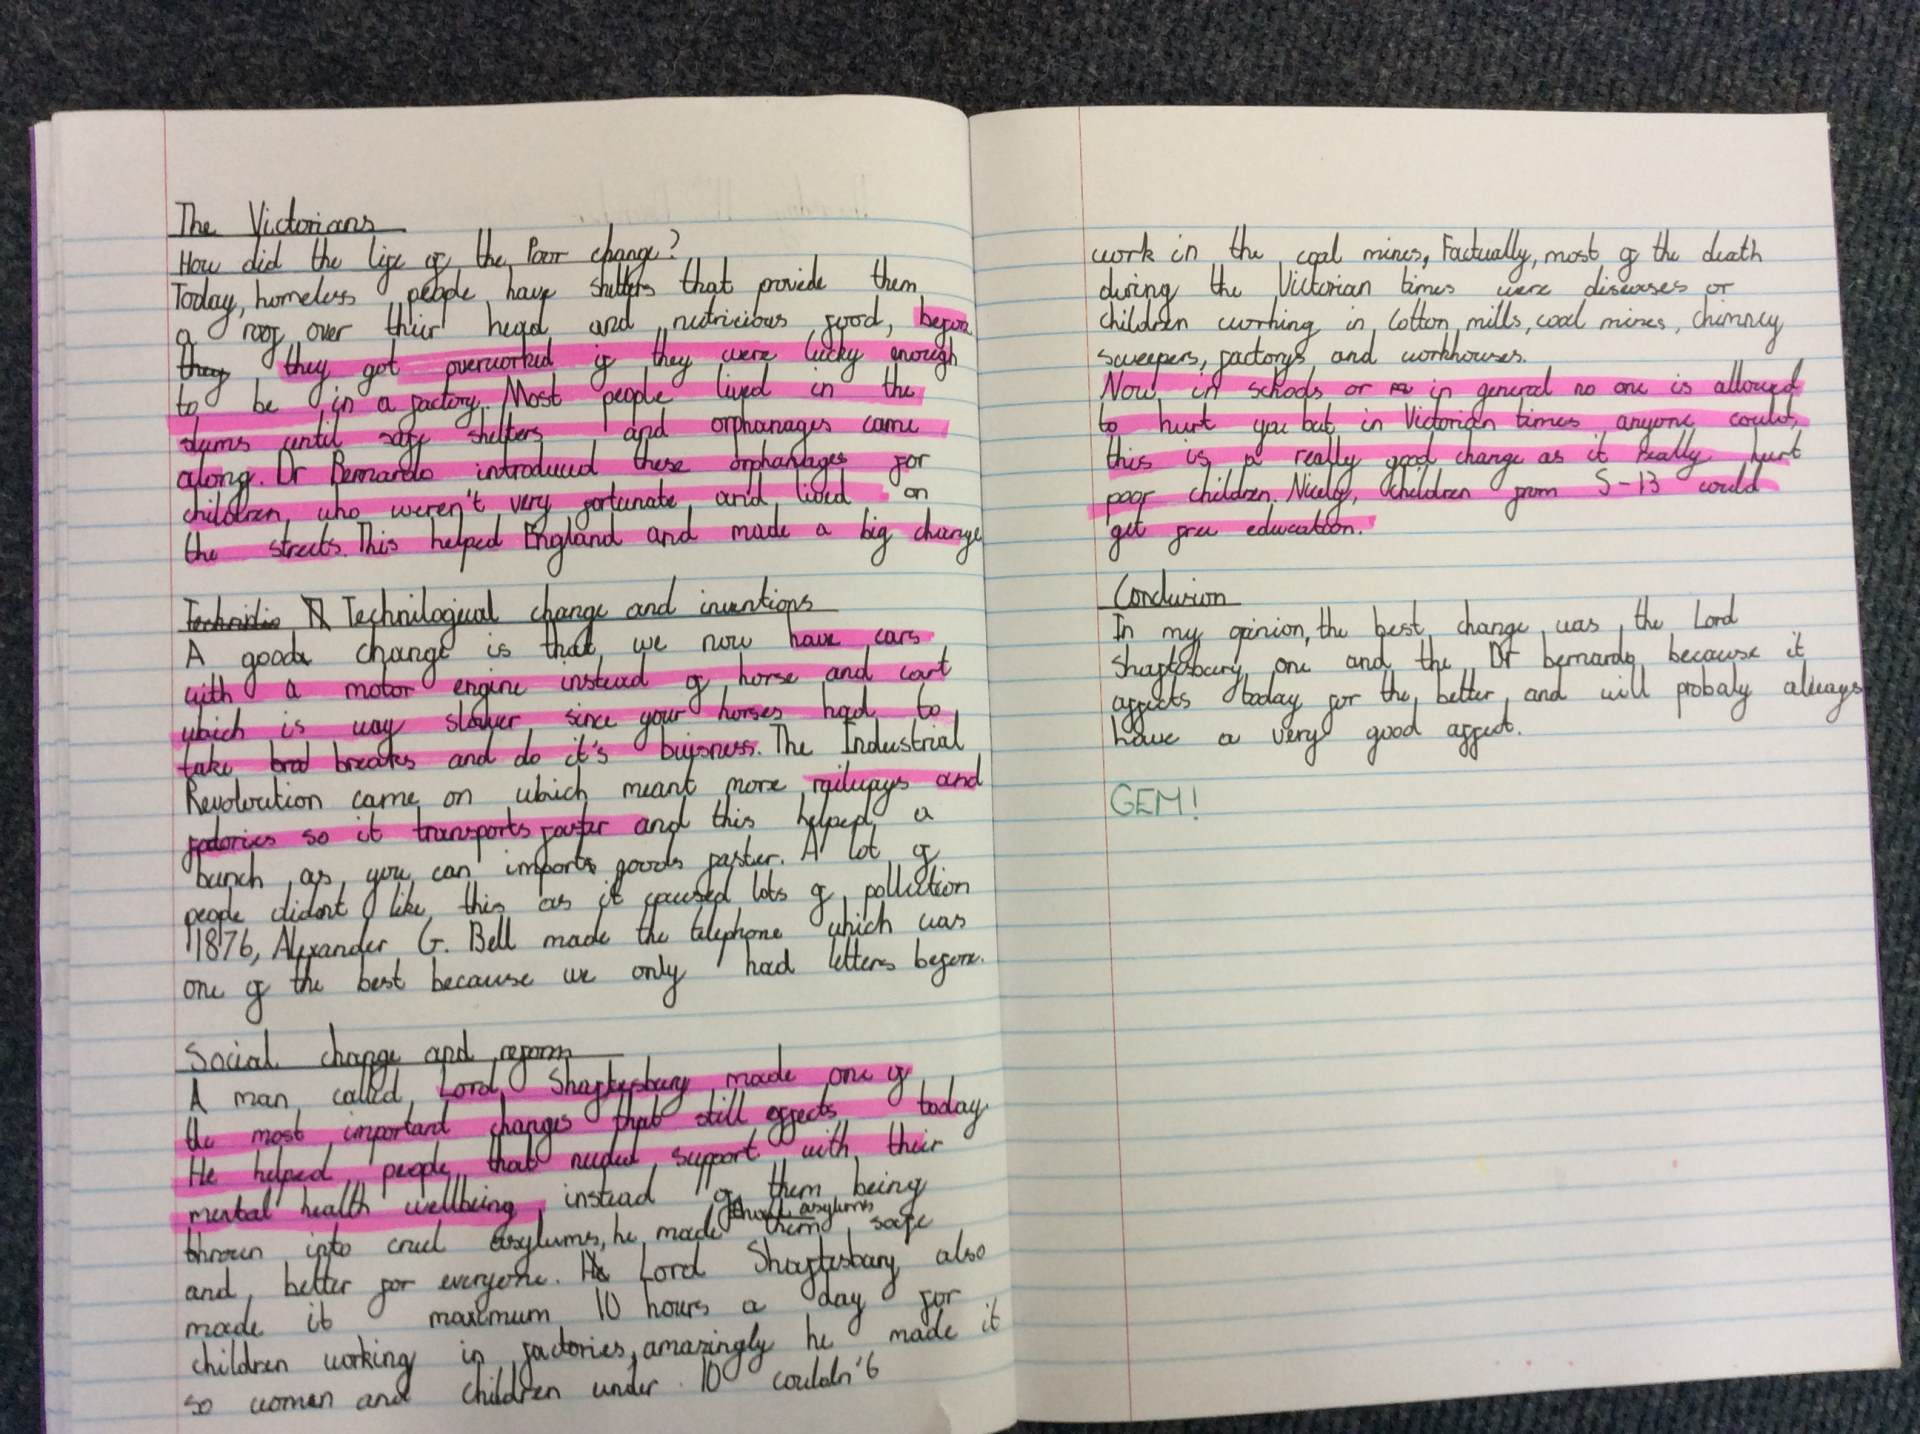 The Victorians
How did the life of the Poor change?
Today, homeless people have shelters that provide them
a roof over their head and nutricious food, before
they they got overworked if they were lucky enough
to be in a factory. Most people lived in the
slums until safe shelters and orphanages came
along. Dr Bernardo introduced these orphanages for
children who weren't very fortunate and lived on
the streets. This helped England and made a big change
Technilogical change and inventions
A good change is that we now have cars
with a motor engine instead of horse and cart
which is way slower since your horses had to
take breaks and do it's buisness. The Industrial
Revoloution came on which meant more railways and
factories so it transports faster and this helped a
bunch as you can import goods faster. A lot of
people didn't like this as it caused lots of pollution
1876, Alexander G. Bell made the telephone which was
one of the best because we only had letters before.
Social change and reform
A man called Lord Shaftesbury made one of
the most important changes that still effects today
He helped people that needed support with their
mental health wellbeing instead of them being
thrown into cruel asylums, he made those asylums them safe
and better for everyone. Lord Shaftesbury also
made it maximum 10 hours a day for
children working in factories, amazingly he made it
so women and children under 10 couldn't
work in the coal mines, Factually, most of the death
during the Victorian times were diseases or
children working in Cotton mills, coal mines, chimney
sweepers, factorys and workhouses.
Now in schools or in general no one is allowed
to hurt you but in Victorian times anyone could,
this is a really good change as it really hurt
poor children. Nicely, children from 5-13 could
get free education.
Conclusion
In my opinion, the best change was the Lord
Shaftesbury one and the Dr bernardo because it
affects today for the better and will probaly always
have a very good affect.
GEM!